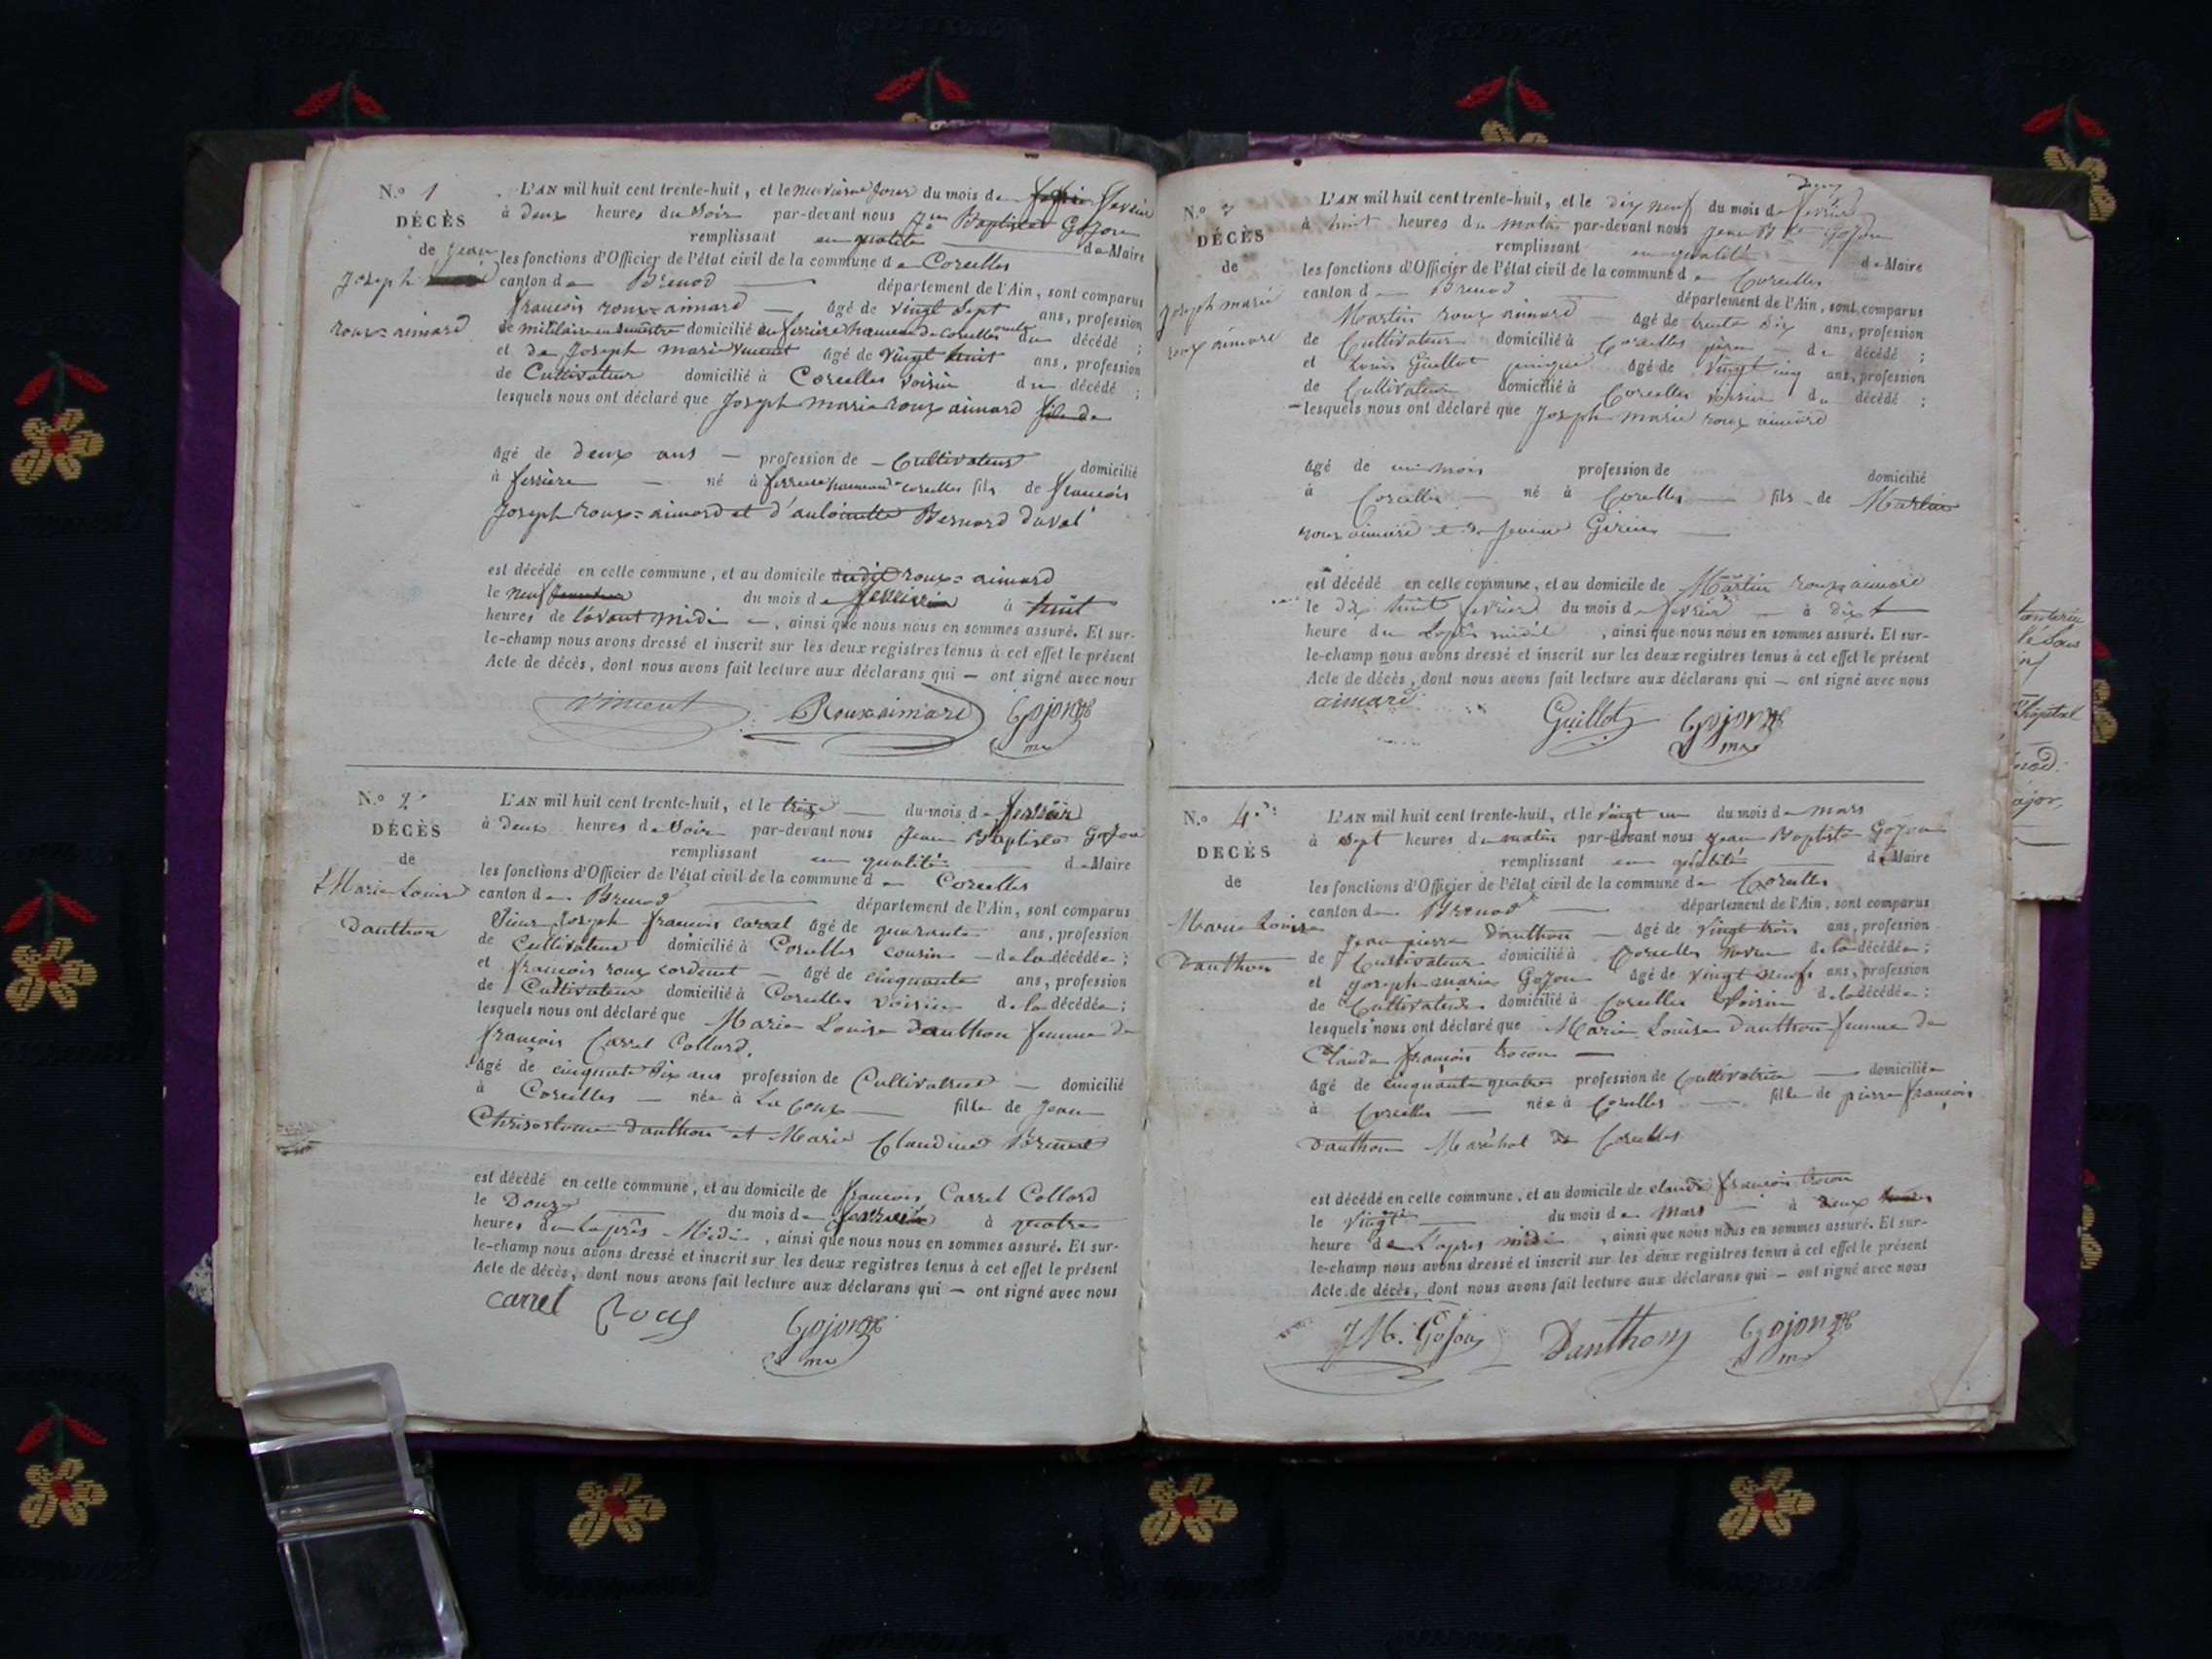 N.o 1
DÉCÈS
de jean
joseph
roux=aimard
L'AN mil huit cent trente-huit, et le neuvième jour du mois de fevrier
à deux heures du soir par-devant nous jean Baptiste Gojon
remplissant en qualité de Maire
les fonctions d'Officier de l'état civil de la commune de Corcelles
canton de Brenod département de l'Ain, sont comparus
francois roux=aimard âgé de vingt sept ans, profession
de militaire domicilié hameau de Corcelles du décédé ;
et de Joseph marie vincent âgé de vingt huit ans, profession
de Cultivateur domicilié à Corcelles voisin du décédé ;
lesquels nous ont déclaré que Joseph marie roux aimard
âgé de deux ans profession de Cultivateur domicilié
à ferrière né à ferriere hameau de corcelles fils de francois
Joseph roux=aimard et d' Bernard
est décédé en cette commune, et au domicile dudit roux=aimard
le neuf du mois de fevrier à huit
heures de l'avant midi, ainsi que nous nous en sommes assuré. Et sur-
le-champ nous avons dressé et inscrit sur les deux registres tenus à cet effet le présent
Acte de décès, dont nous avons fait lecture aux déclarans qui — ont signé avec nous
vincent Roux aimard Gojon
N.o 2
DÉCÈS
de
Marie Louise
Danthon
L'AN mil huit cent trente-huit, et le treize du mois de fevrier
à deux heures de soir par-devant nous jean Baptiste Gojon
remplissant en qualité de Maire
les fonctions d'Officier de l'état civil de la commune de Corcelles
canton de Brenod département de l'Ain, sont comparus
joseph francois carrel âgé de quarante ans, profession
de Cultivateur domicilié à Corcelles cousin de la décédée ;
et francois roux cordenet âgé de cinquante ans, profession
de Cultivateur domicilié à Corcelles voisin de la décédée ;
lesquels nous ont déclaré que Marie Louise Danthon femme de
francois Carrel Collard.
âgé de cinquante six ans profession de Cultivatrice domicilié
à Corcelles née à fille de jean
Chrisostome danthon et Marie Claudine
est décédé en cette commune, et au domicile de francois Carrel Collard
le Douze du mois de fevrier à quatre
heures de laprès Midi, ainsi que nous nous en sommes assuré. Et sur-
le-champ nous avons dressé et inscrit sur les deux registres tenus à cet effet le présent
Acte de décès, dont nous avons fait lecture aux déclarans qui — ont signé avec nous
Carrel Roux Gojon
N.o 3
DÉCÈS
de
joseph marie
roux aimard
L'AN mil huit cent trente-huit, et le dix neuf du mois de fevrier
à huit heures du matin par-devant nous jean Bte Gojon
remplissant en qualité de Maire
les fonctions d'Officier de l'état civil de la commune de Corcelles
canton de Brenod département de l'Ain, sont comparus
Martin roux aimard âgé de trente six ans, profession
de Cultivateur domicilié à Corcelles père du décédé ;
et Louis Guillot âgé de vingt cinq ans, profession
de Cultivateur domicilié à Corcelles voisin du décédé ;
lesquels nous ont déclaré que Joseph marie roux aimard
âgé de un mois profession de domicilié
à Corcelles né à Corcelles fils de Martin
roux aimard et de jeanne
est décédé en cette commune, et au domicile de Martin roux aimard
le dix huit fevrier du mois de fevrier à
heure du Laprès midi, ainsi que nous nous en sommes assuré. Et sur-
le-champ nous avons dressé et inscrit sur les deux registres tenus à cet effet le présent
Acte de décès, dont nous avons fait lecture aux déclarans qui — ont signé avec nous
aimard Guillot Gojon
N.o 4
DÉCÈS
de
Marie Louise
Danthon
L'AN mil huit cent trente-huit, et le vingt un du mois de mars
à sept heures du matin par-devant nous jean Baptiste Gojon
remplissant en qualité de Maire
les fonctions d'Officier de l'état civil de la commune de Corcelles
canton de Brenod département de l'Ain, sont comparus
jean pierre Danthon âgé de vingt trois ans, profession
de Cultivateur domicilié à Corcelles neveu de la décédée ;
et joseph marie Gojon âgé de vingt neuf ans, profession
de Cultivateur domicilié à Corcelles voisin de la décédée ;
lesquels nous ont déclaré que Marie Louise Danthon femme de
Claude françois
âgé de cinquante quatre profession de Cultivatrice domiciliée
à Corcelles née à Corcelles fille de pierre françois
Danthon Maréchal de Corcelles
est décédé en cette commune, et au domicile de claude francois
le vingt du mois de Mars à deux
heure de L'apres midi, ainsi que nous nous en sommes assuré. Et sur-
le-champ nous avons dressé et inscrit sur les deux registres tenus à cet effet le présent
Acte de décès, dont nous avons fait lecture aux déclarans qui — ont signé avec nous
J M. Gojon Danthon Gojon